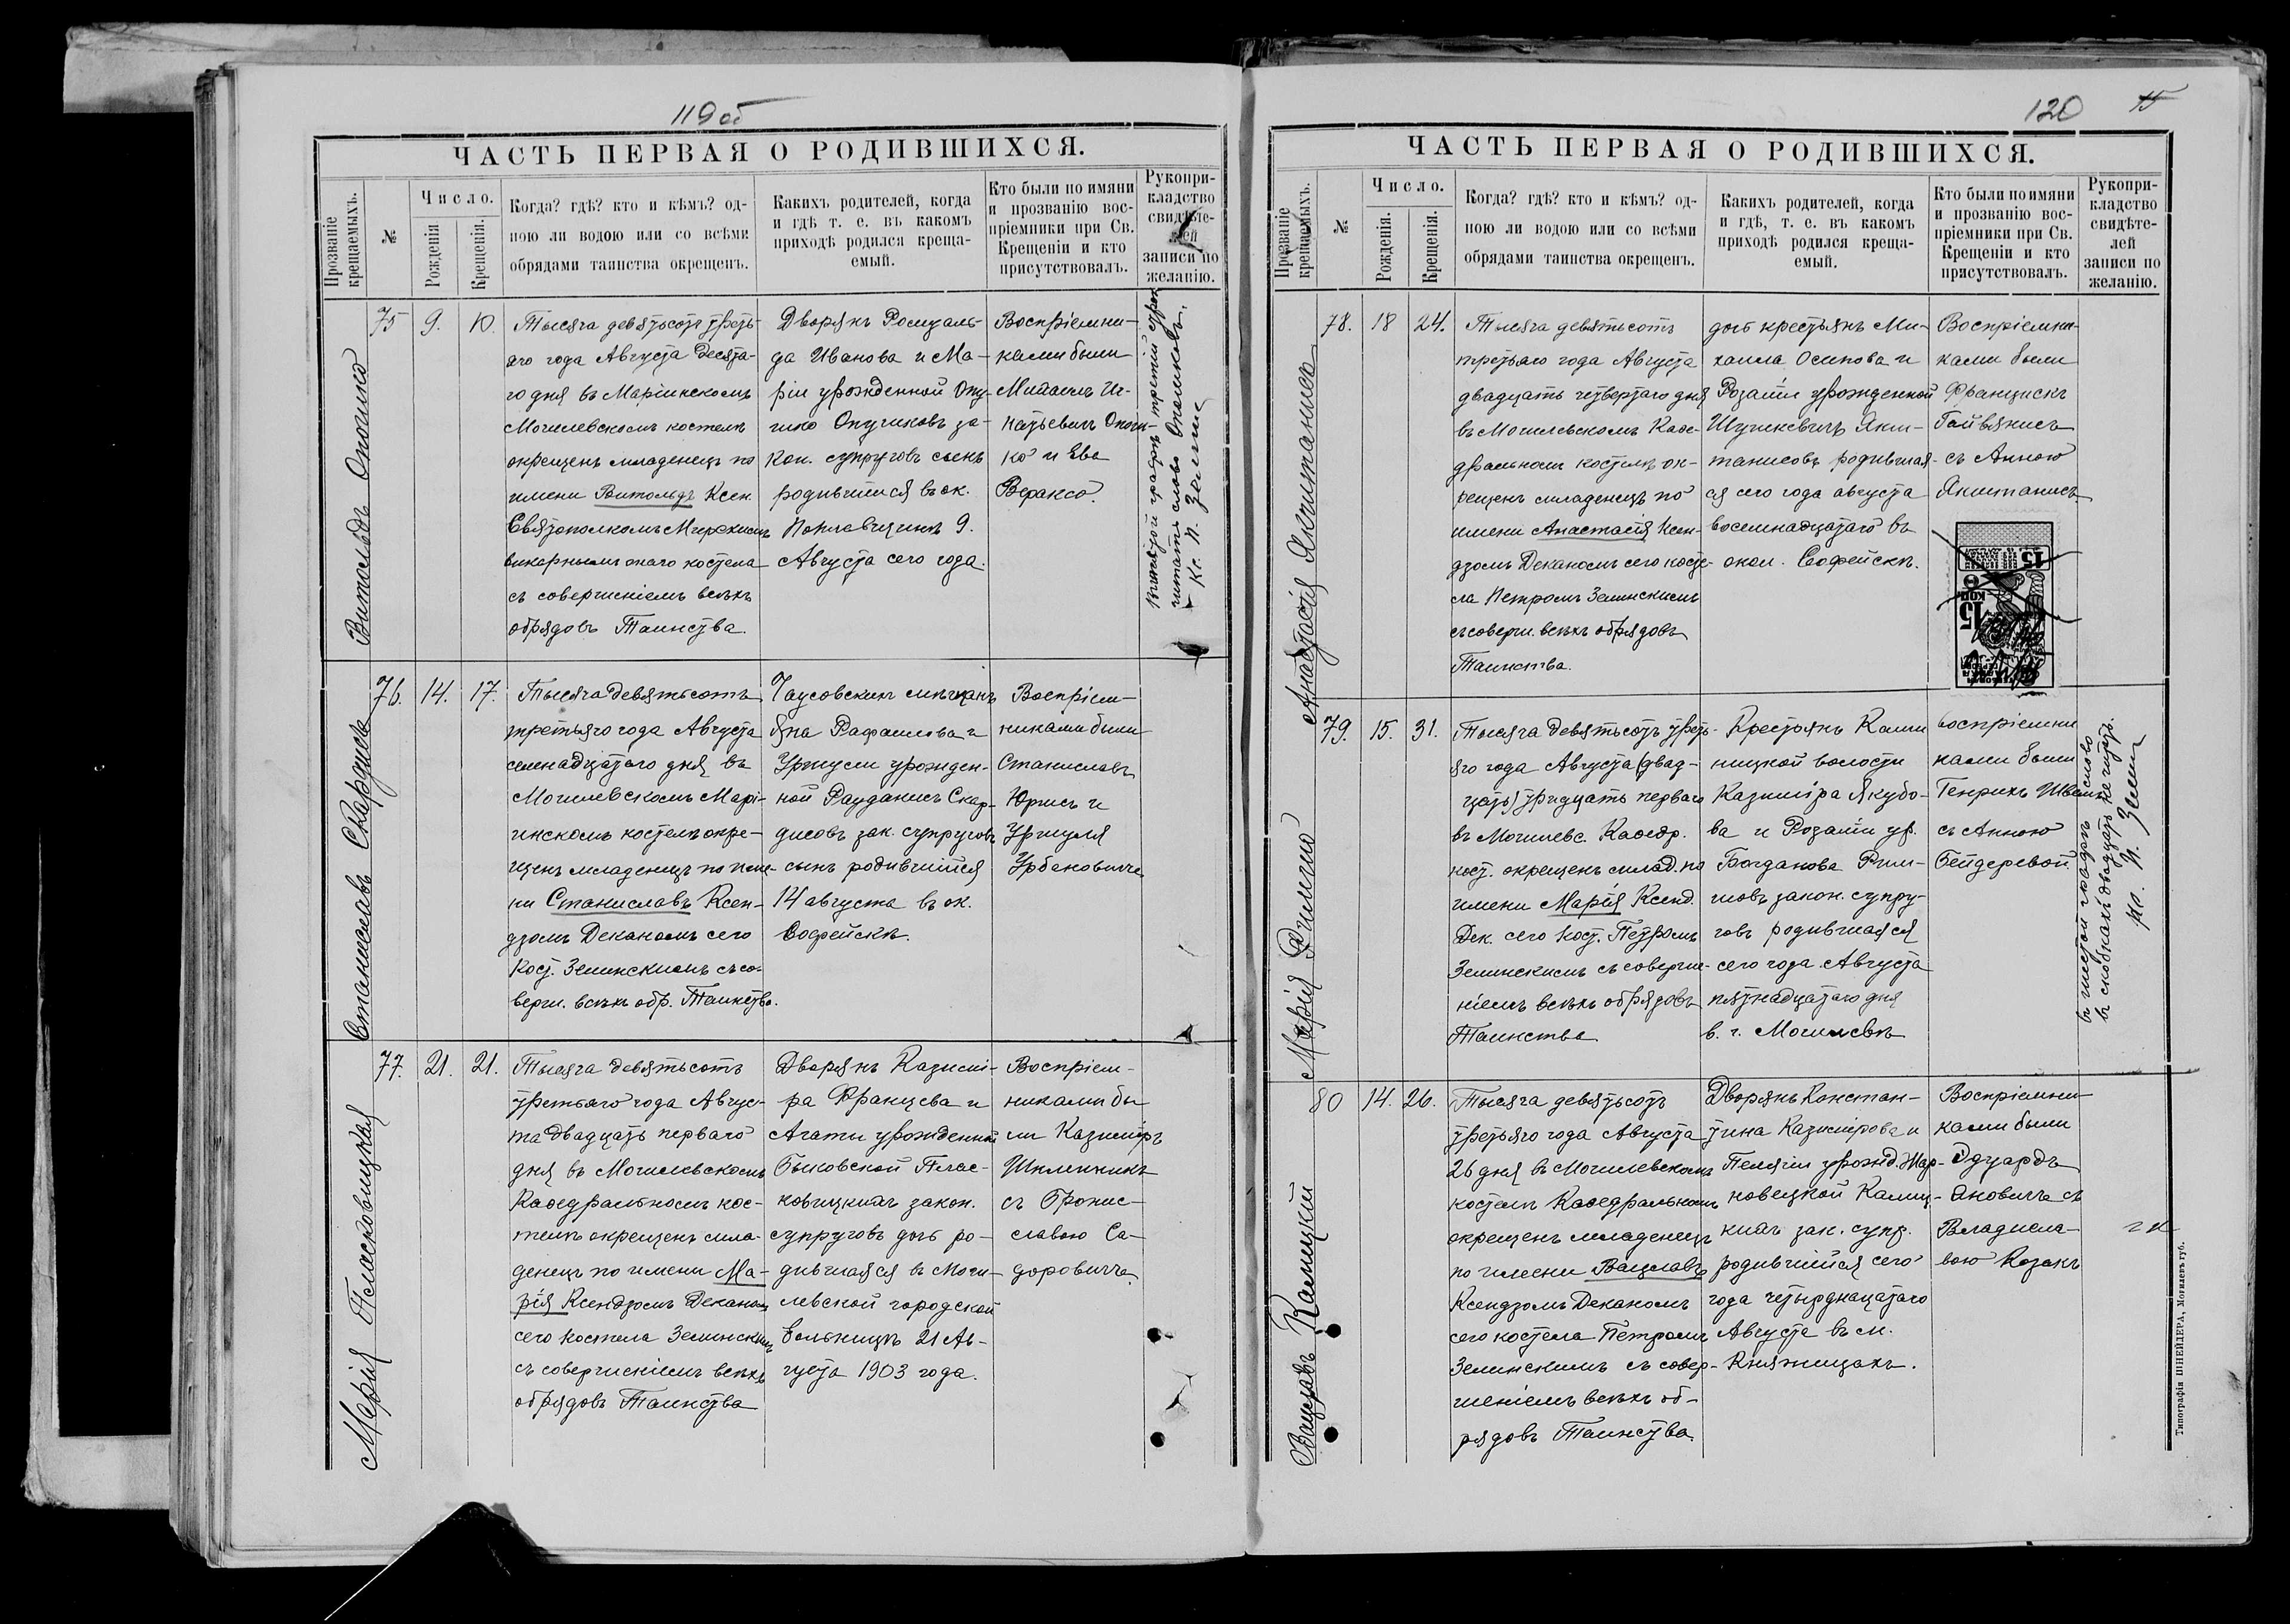 119 об
ЧАСТЬ ПЕРВАЯ О РОДИВШИХСЯ.
Прозваніе крещаемыхъ.
№
Число.
Рожденія
Крещенія.
Когда? гдѣ? кто и кѣмъ? од-
ною ли водою или со всѣми
обрядами таинства окрещенъ.
Какихъ родителей, когда
и гдѣ т. е. въ какомъ
приходѣ родился креща-
емый.
Кто были по имяни
и прозванію вос-
пріемники при Св.
Крещеніи и кто
присутствовалъ.
Рукопри-
кладство
свидѣте-
лей
записи по
желанію.
Витольдъ
75
9.
10.
Тысяча девятьсотъ треть-
яго года Августа десята-
го дня въ Маріинскомъ
Могилевскомъ костелѣ
окрещенъ младенецъ по
имени Витольдъ Ксен.
Святополкомъ
викарнымъ онаго костела
съ совершеніемъ всѣхъ
обрядовъ Таинства.
Дворянъ Ромуаль-
да Иванова и Ма-
ріи урожденной
за-
кон. супруговъ сынъ
родившійся въ ок.
9.
Августа сего года.
Воспріемни-
ками были
Михаилъ Иг-
натьевичъ
ко и Ева
Вераксо.
третій
читать слово
Кс. П. Зелин
Станиславъ Скардисъ
76.
14.
17.
Тысяча девятьсотъ
третьяго года Августа
семнадцатаго дня въ
Могилевскомъ Марі-
инскомъ костелѣ окре-
щенъ младенецъ по име-
ни Станиславъ Ксен-
дзомъ Деканомъ сего
Кост. Зелинскимъ съ со-
верш. всѣхъ обр. Таинства.
Чаусовскихъ мѣщанъ
Яна Рафаилова и
Уршули урожден-
ной Рауданисъ Скар-
дисовъ зак. супруговъ
сынъ родившійся
14 августа въ ок.
Софейскѣ.
Воспріем-
никами были
Станиславъ
Юрисъ и
Уршуля
Урбановичъ
Марія Пласковицкая
77.
21.
21.
Тысяча девятьсотъ
третьяго года Авгус-
та двадцать перваго
дня въ Могилевскомъ
Каѳедральномъ кос-
телѣ окрещенъ мла-
денецъ по имени Ма-
рія Ксендзомъ Деканом
сего костела Зелинскимъ
съ совершеніемъ всѣхъ
обрядовъ Таинства
Дворянъ Казимі-
ра Францева и
Агаты урожденной
Быковской Плас-
ковицкихъ закон.
супруговъ дочь ро-
дившаяся въ Моги-
левской городской
больницѣ 21 Ав-
густа 1903 года.
Воспріем-
никами бы
ли Казиміръ
съ Бронис-
лавою Са-
доровичъ
120
ЧАСТЬ ПЕРВАЯ О РОДИВШИХСЯ.
Прозваніе крещаемыхъ.
№
Число.
Рожденія.
Крещенія.
Когда? гдѣ? кто и кѣмъ? од-
ною ли водою или со всѣми
обрядами таинства окрещенъ.
Какихъ родителей, когда
и гдѣ, т. е. въ какомъ
приходѣ родился креща-
емый.
Кто были по имяни
и прозванію вос-
пріемники при Св.
Крещеніи и кто
присутствовалъ.
Рукопри-
кладство
свидѣте-
лей
записи по
желанію.
Анастасія Якштанисъ
78.
18
24.
Тысяча девятьсотъ
третьяго года Августа
двадцать четвертаго дня
въ Могилевскомъ Каѳе-
дральномъ костелѣ ок-
рещенъ младенецъ по
имени Анастасія Ксен-
дзомъ Деканомъ сего косте-
ла Петромъ Зелинскимъ
съ соверш. всѣхъ обрядовъ
Таинства.
дочь крестьянъ Ми-
хаила Осипова и
Розаліи урожденной
Якш-
танисовъ родившая-
ся сего года августа
восемнадцатаго въ
окол. Софейскѣ.
Воспріемни-
ками были
Францискъ
Гайвянисъ
съ Анною
Якштанисъ
15
15
КОП
Марія Римшо
79.
15.
31.
Тысяча девятьсотъ треть-
яго года Августа (двад-
цать) тридцать перваго
въ Могилевс. Каѳедр.
кост. окрещенъ млад. по
имени Марія Ксенд.
Дек. сего Кост. Петромъ
Зелинскимъ съ соверше-
ніемъ всѣхъ обрядовъ
Таинства
Крестьянъ Камі
ницкой волости
Казиміра Якубо-
ва и Розаліи ур.
Богданова Рим-
шовъ закон. супру-
говъ родившаяся
сего года Августа
пятнадцатаго дня
въ г. Могилевѣ
воспріемни
ками были
Генрихъ
съ Анною
Бейдеровой.
въ шестой слово
въ скобкахъ двадцать не читать.
Кс. П. Зелин
Вацлавъ Калицкій
80
14.
26.
Тысяча девятьсотъ
третьяго года Августа
26 дня въ Могилевскомъ
костелѣ Каѳедральномъ
окрещенъ младенецъ
по имени Вацлавъ
Ксендзомъ Деканомъ
сего костела Петромъ
Зелинскимъ съ совер-
шеніемъ всѣхъ об-
рядовъ Таинства.
Дворянъ Констан-
тина Казимірова и
Пелягіи урожд. Жар-
новецкой Калиц-
кихъ зак. супр.
родившійся сего
года четырнадцатаго
Августа въ м.
Княжицахъ.
Воспріемни-
ками были
Эдуардъ
Яновичъ съ
Владисла-
вою Козакъ
Типографія ШНЕЙДЕРА, Могилевъ губ.